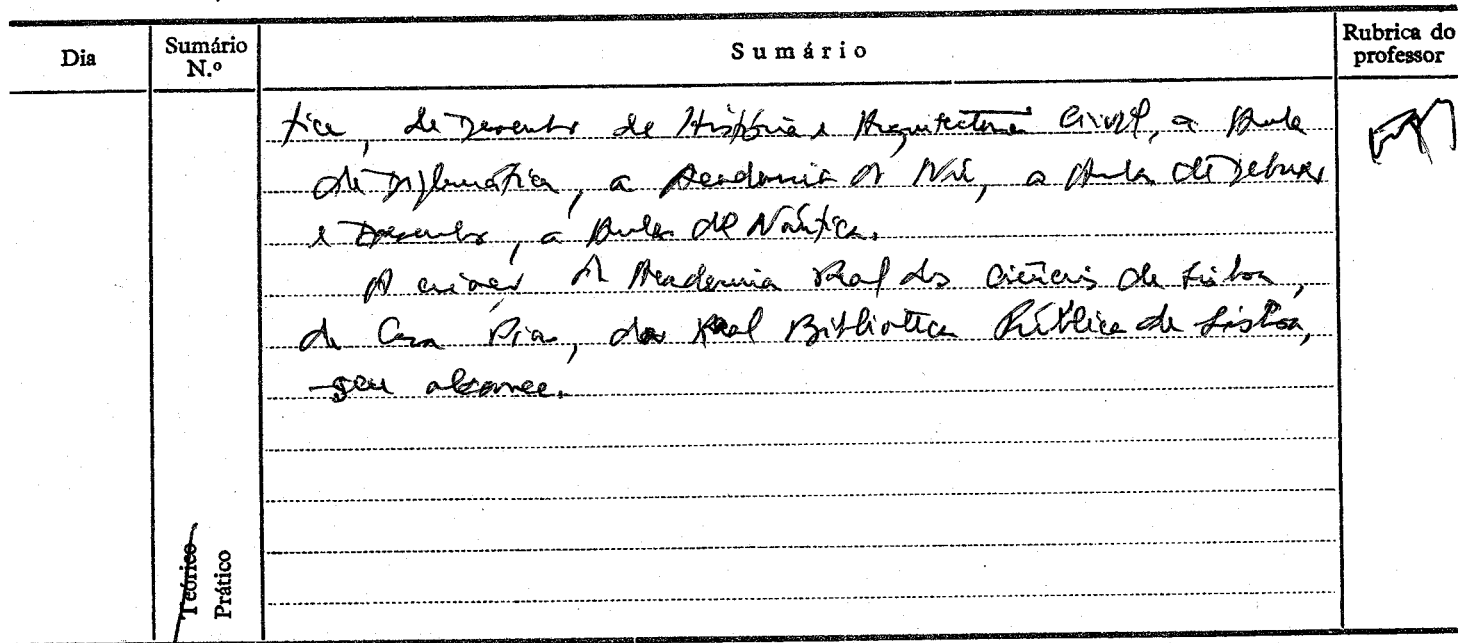 Dia
Sumário N.º
Sumário
Rubrica do professor
tica, de Desenho de História e Arquitectura Civil, a Aula
de Diplomática, a Academia do Nú, a Aula de Debuxo
e Desenho, a Aula de Náutica.
A criação da Academia Real das Ciências de Lisboa,
da Casa Pia, da Real Biblioteca Pública de Lisboa,
seu alcance.
Teórico
Prático